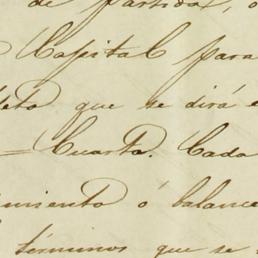 de partida, o
Capital para
que se dirá e
= Cuarta. Cada
miento ó balance
términos que se